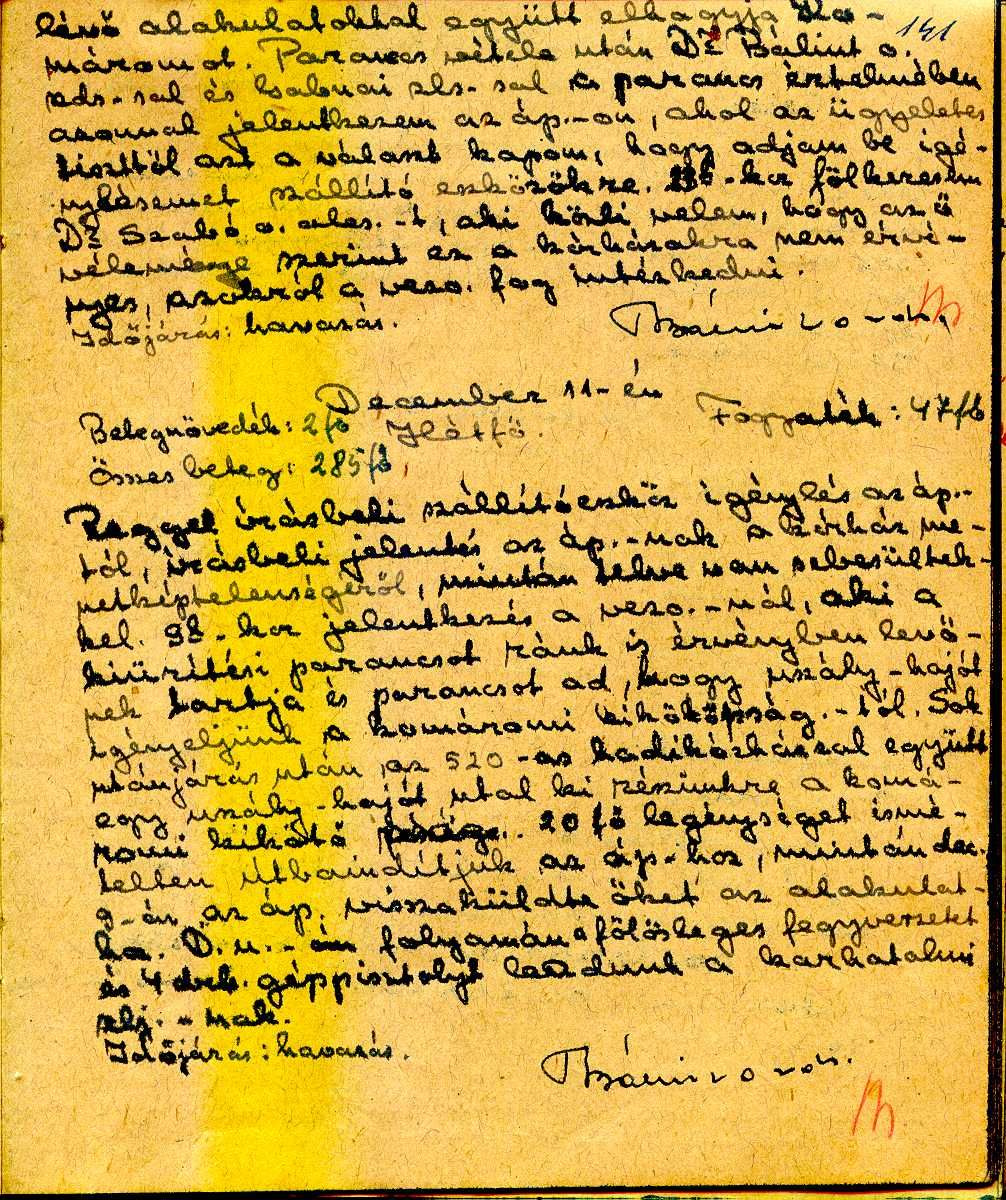 141
lévő alakulatokkal együtt elhagyja Ko-
máromot. Parancs vétele után Dr Bálint o.
zds.-sal és Csabai zls.-sal a parancs értelmében
azonnal jelentkezem az áp.-on, ahol az ügyeletes
tiszttől azt a választ kapom, hogy adjam be igé-
nylésemet szállító eszközökre. -kor fölkeresem
Dr Szabó o. alez.-t, aki közli velem, hogy az ő
véleménye szerint ez a kórházakra nem érvé-
nyes, azokról a vezo. fog intézkedni.
Időjárás: havazás.
December 11-én
Betegnövedék: 2 fő Hétfő. Fogyaték: 47 fő
Összes beteg: 285 fő
Reggel írásbeli szállítóeszköz igénylés az áp.-
tól, írásbeli jelentés az áp.-nak a kórház me-
netképtelenségéről, miután telve van sebesültek-
kel. -kor jelentkezés a vezo.-nál, aki a
kiürítési parancsot ránk is érvényben levő-
nek tartja és parancsot ad, hogy uszály-hajót
igényeljünk a komáromi kikötőpság.-tól. Sok
utánjárás után az 520-as hadikórházzal együtt
egy uszály-hajót utal ki részünkre a komá-
romi kikötő psága. 20 fő legénységet ismé-
telten útbaindítjuk az áp-hoz, miután dec.
9-én az áp. visszaküldte őket az alakulat-
hoz. D.u.-án folyamán a fölösleges fegyverzetet
és 4 drb. géppisztolyt leadunk a karhatalmi
zlj.-nak.
Időjárás: havazás.